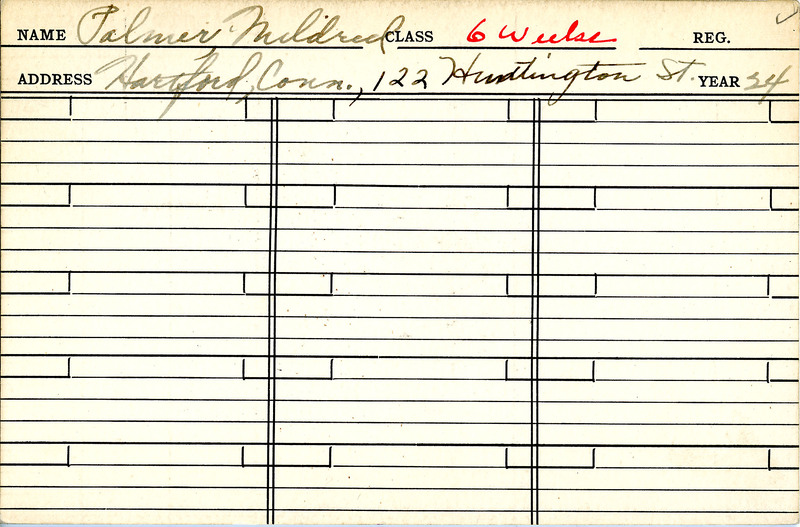 NAME Palmer, Mildred CLASS 6 Weeks REG.
ADDRESS Hartford, Conn., 122 Huntington St. YEAR 24